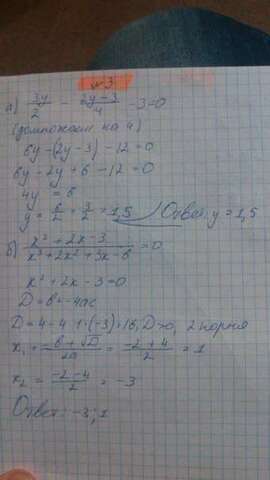 №3
а) 3y/2 - (2y-3)/4 - 3=0
(домножаем на 4)
6y-(2y-3)-12=0
6y-2y+6-12=0
4y=6
y = 6/2 = 3/2 = 1,5 Ответ: y=1,5
б) (x²+2x-3)/(x³+2x²+3x-6)=0
x²+2x-3=0
D=b-4ac
D=4-4·1·(-3)=16, D>0, 2 корня
x₁=(-b+√D)/2a=(-2+4)/2=1
x₂=(-2-4)/2=-3
Ответ: -3; 1